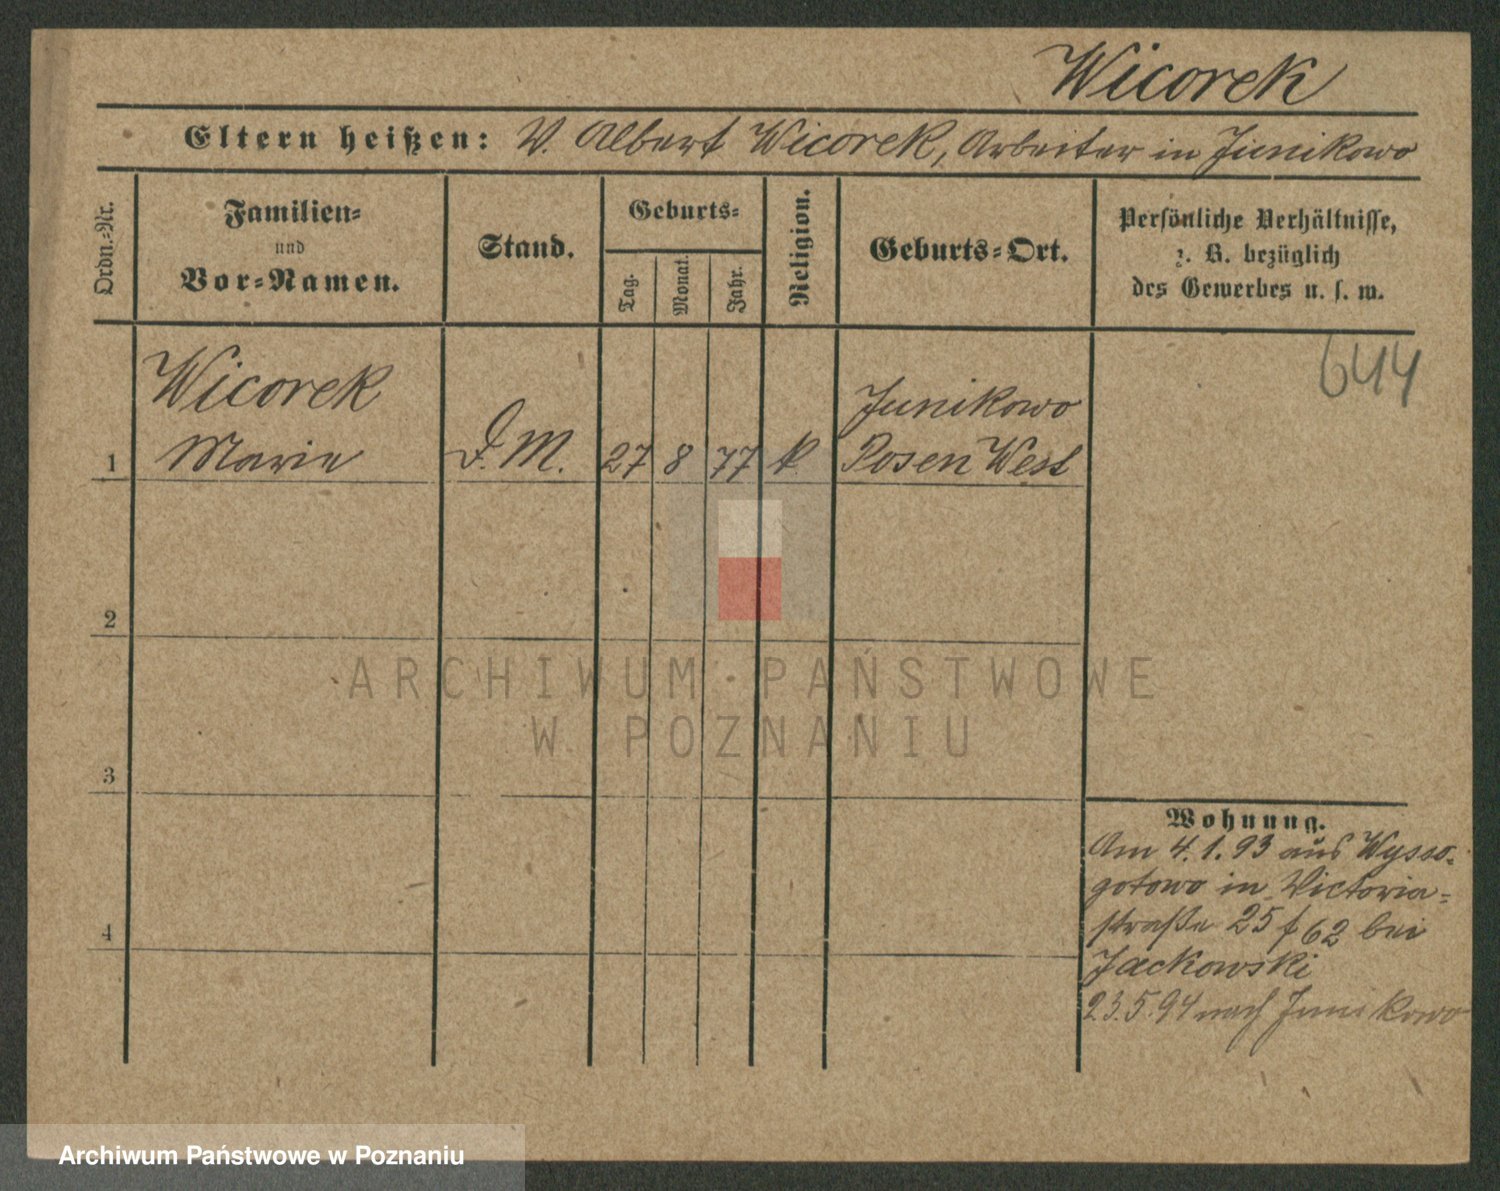 Wicorek
Eltern heißen: V. Albert Wicorek, Arbeiter in Junikowo
Ordn.-Nr.
Familien-
und
Vor-Namen.
Stand.
Geburts-
Tag.
Monat.
Jahr.
Religion.
Geburts-Ort.
Persönliche Verhältnisse,
z. B. bezüglich
des Gewerbes u. s. w.
644
Wicorek
Marie
1
D. M.
27
8
77
k.
Junikowo
Posen West
2
ARCHIWUM PAŃSTWOWE
W POZNANIU
3
Wohnung.
Am 4.1.93 aus Wysso-
gotowo in Victoria-
straße 25 f 62 bei
Jackowski
23.5.94 nach Junikowo
4
Archiwum Państwowe w Poznaniu